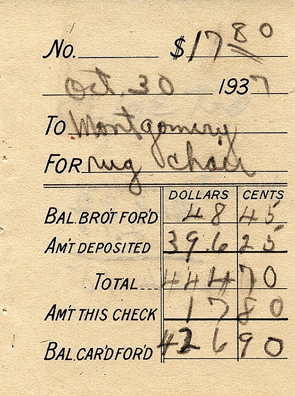 No. $17 80
Oct. 30 1937
TO Montgomery
FOR rug chair
DOLLARS CENTS
BAL. BRO'T FOR'D 48 45
AM'T DEPOSITED 396 25
TOTAL 444 70
AM'T THIS CHECK 17 80
BAL. CAR'D FOR'D 426 90